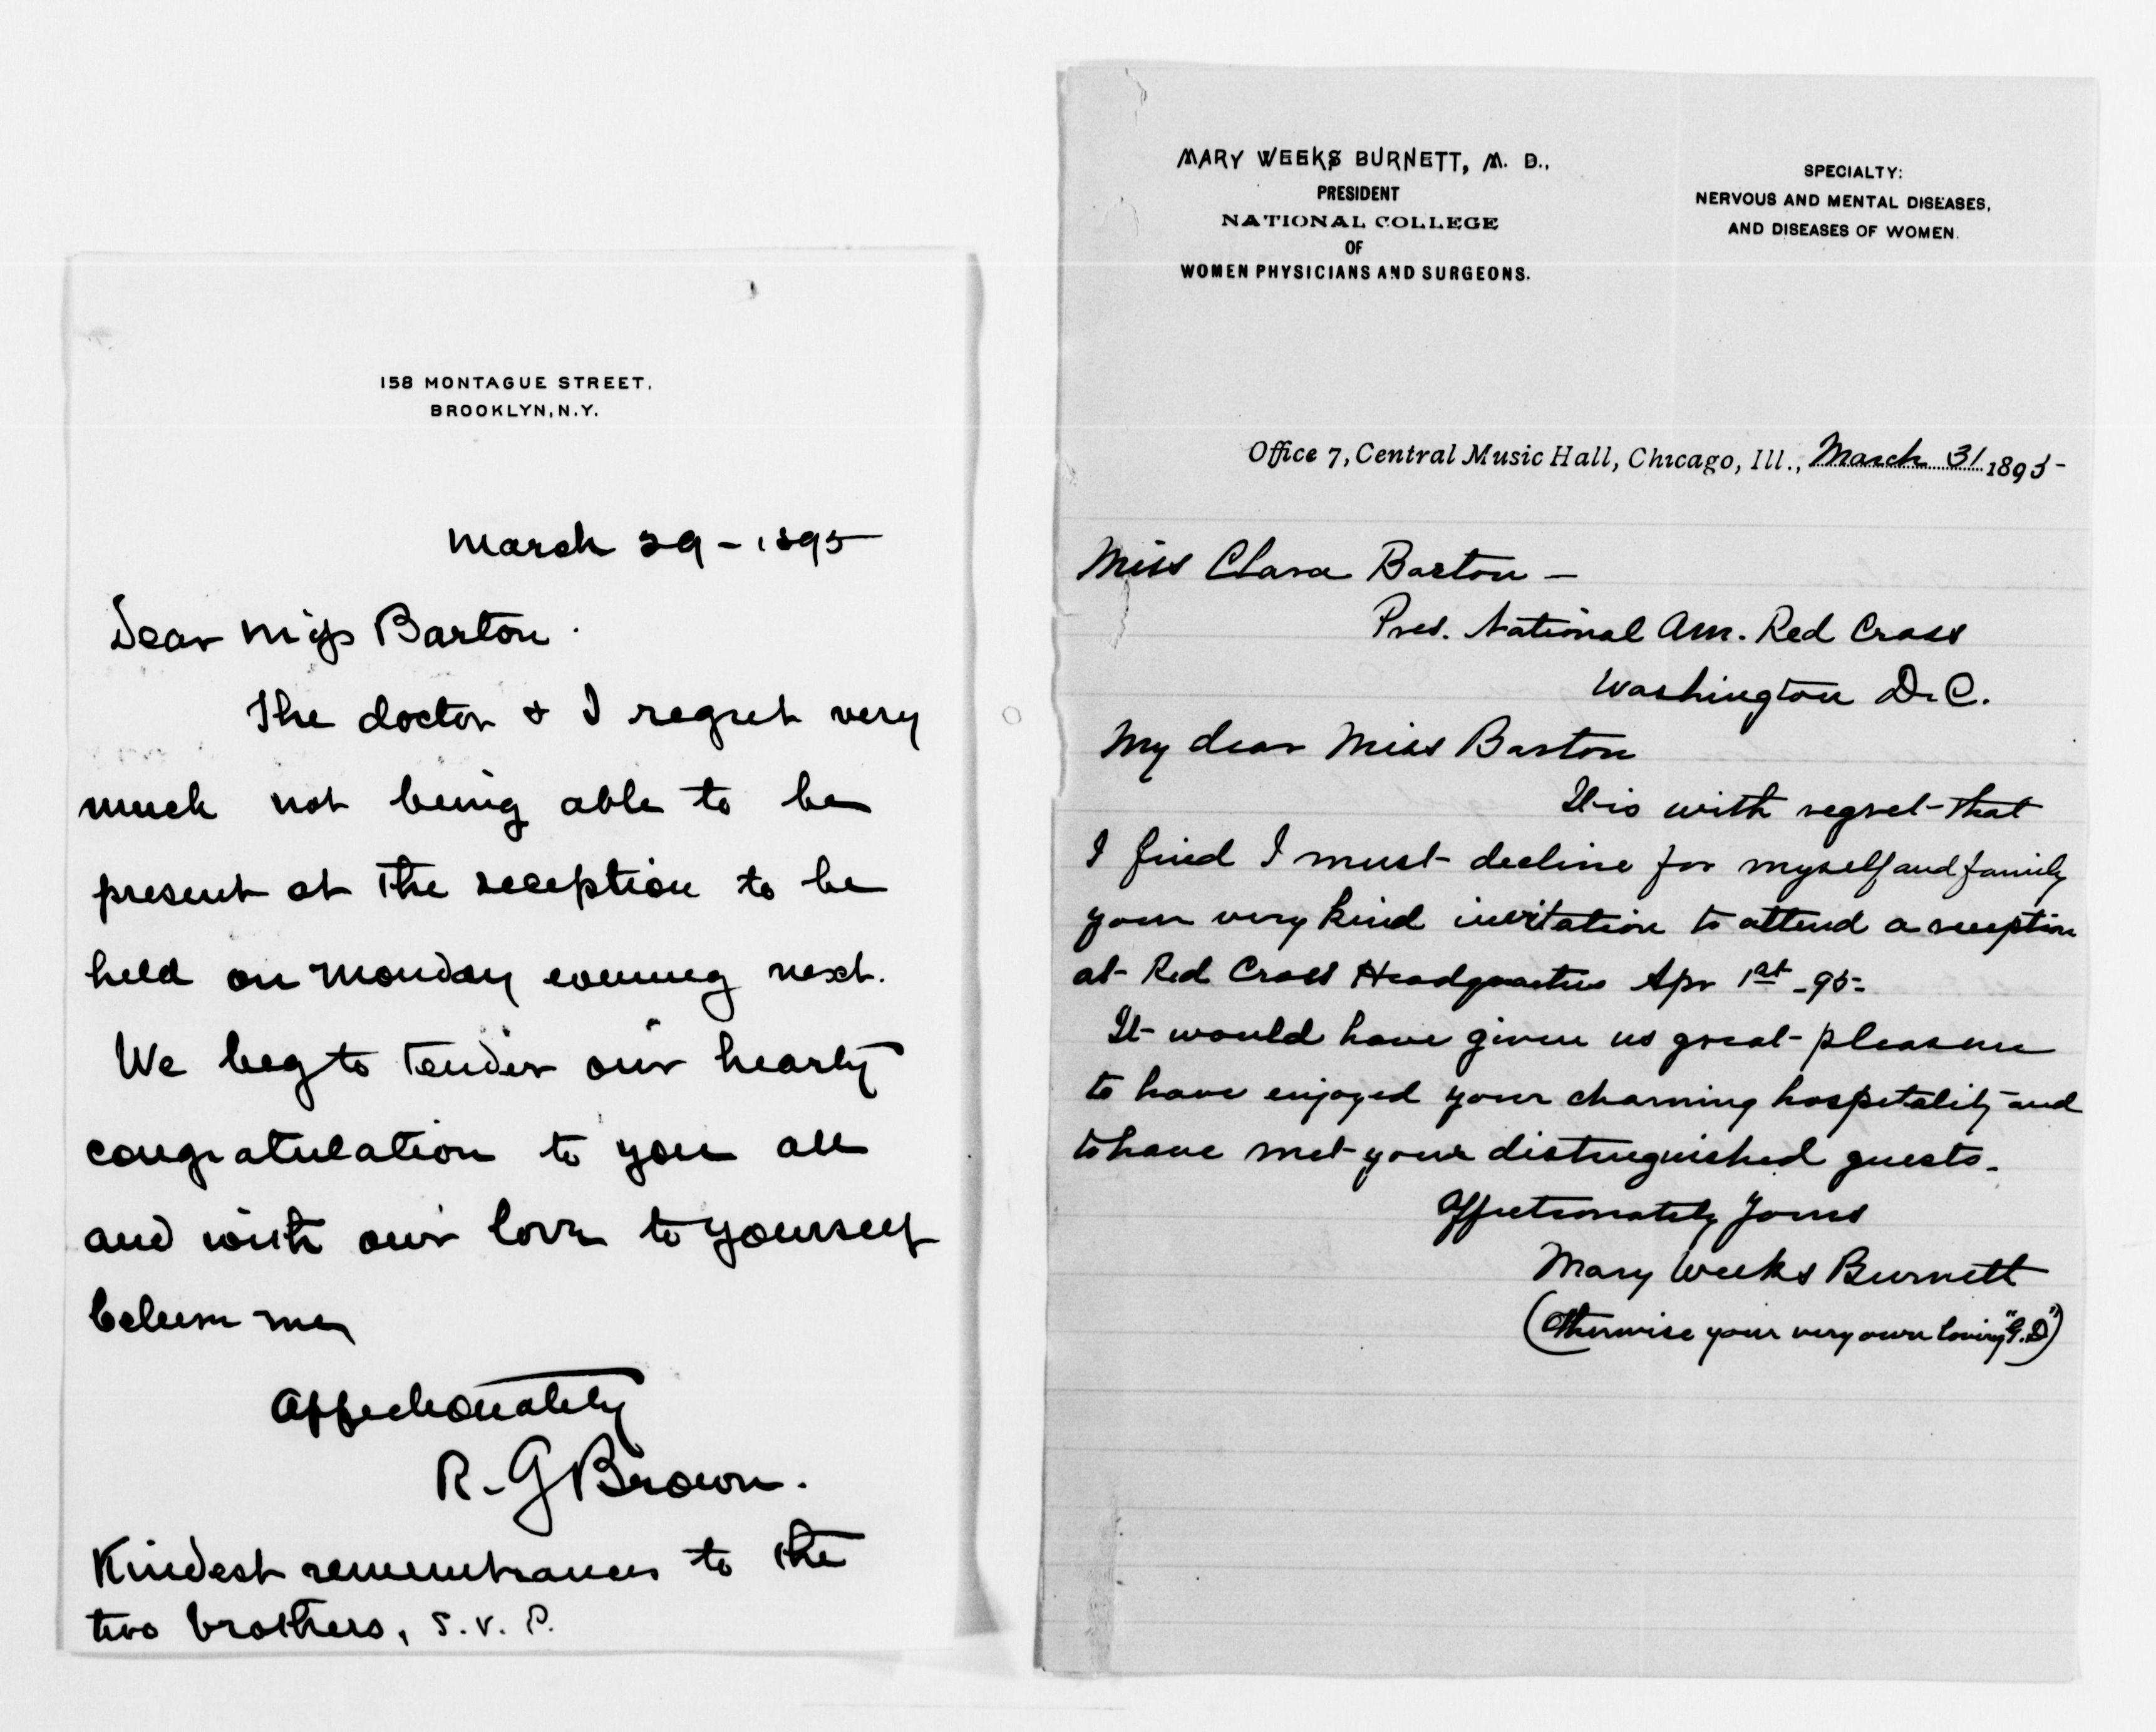 158 MONTAGUE STREET,
BROOKLYN, N.Y.
March 29 - 1895
Dear Miss Barton.
The doctor & I regret very
much not being able to be
present at the reception to be
held on Monday evening next.
We beg to tender our hearty
congratulation to you all
and with our love to yourself
believe me
Affectionately
R. G Brown.
Kindest remembrances to the
two brothers, S. V. P.
MARY WEEKS BURNETT, M. D.,
PRESIDENT
NATIONAL COLLEGE
OF
WOMEN PHYSICIANS AND SURGEONS.
SPECIALTY:
NERVOUS AND MENTAL DISEASES,
AND DISEASES OF WOMEN.
Office 7, Central Music Hall, Chicago, Ill., March 31 1895-
Miss Clara Barton -
Pres. National Am. Red Cross
Washington D.C.
My dear Miss Barton
It is with regret that
I find I must decline for myself and family
your very kind invitation to attend a reception
at Red Cross Headquarters Apr 1st - 95-
It would have given us great pleasure
to have enjoyed your charming hospitality and
to have met your distinguished guests -
Affectionately Yours
Mary Weeks Burnett
(Otherwise your very own loving "G.D")